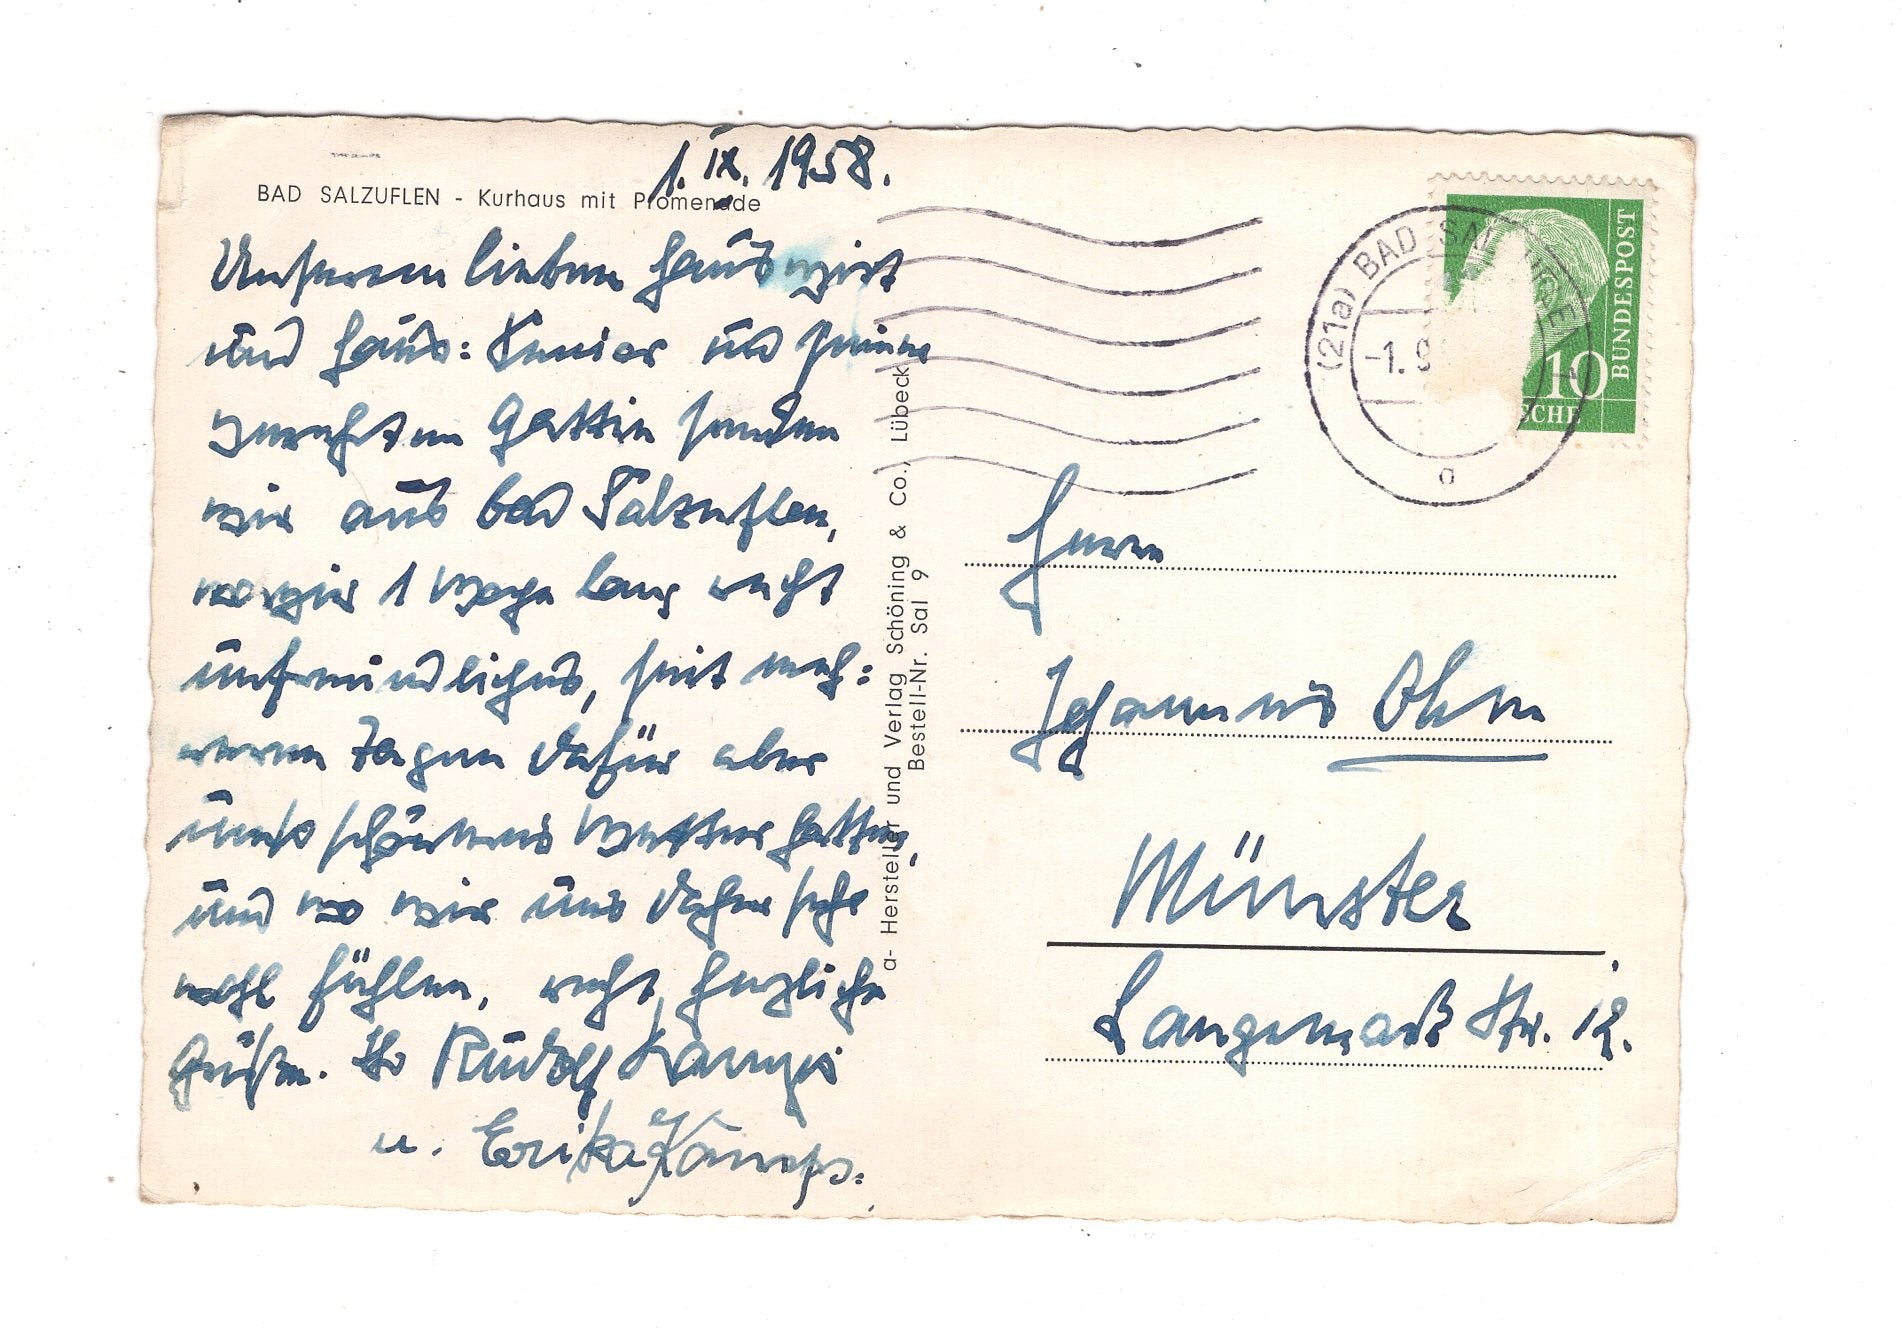 1. IX. 1958.
BAD SALZUFLEN - Kurhaus mit Promenade
Unserem lieben Hauswirt
und Haus: Senior und seiner
verehrten Gattin senden
wir aus Bad Salzuflen,
wo wir 1 Woche lang recht
unfreundliches, seit meh:
reren Tagen dafür aber
umso schöneres Wetter hatten,
und wo wir uns daher sehr
wohl fühlen, recht herzliche
Grüße. Ihr Rudolf Kamps
u. Erika Kamps.
a- Hersteller und Verlag Schöning & Co., Lübeck
Bestell-Nr. Sal 9
(21a) BAD SAL
-1. 9
a
10
BUNDESPOST
Herrn
Johannes Ohm
Münster
Langemarck Str. 12.